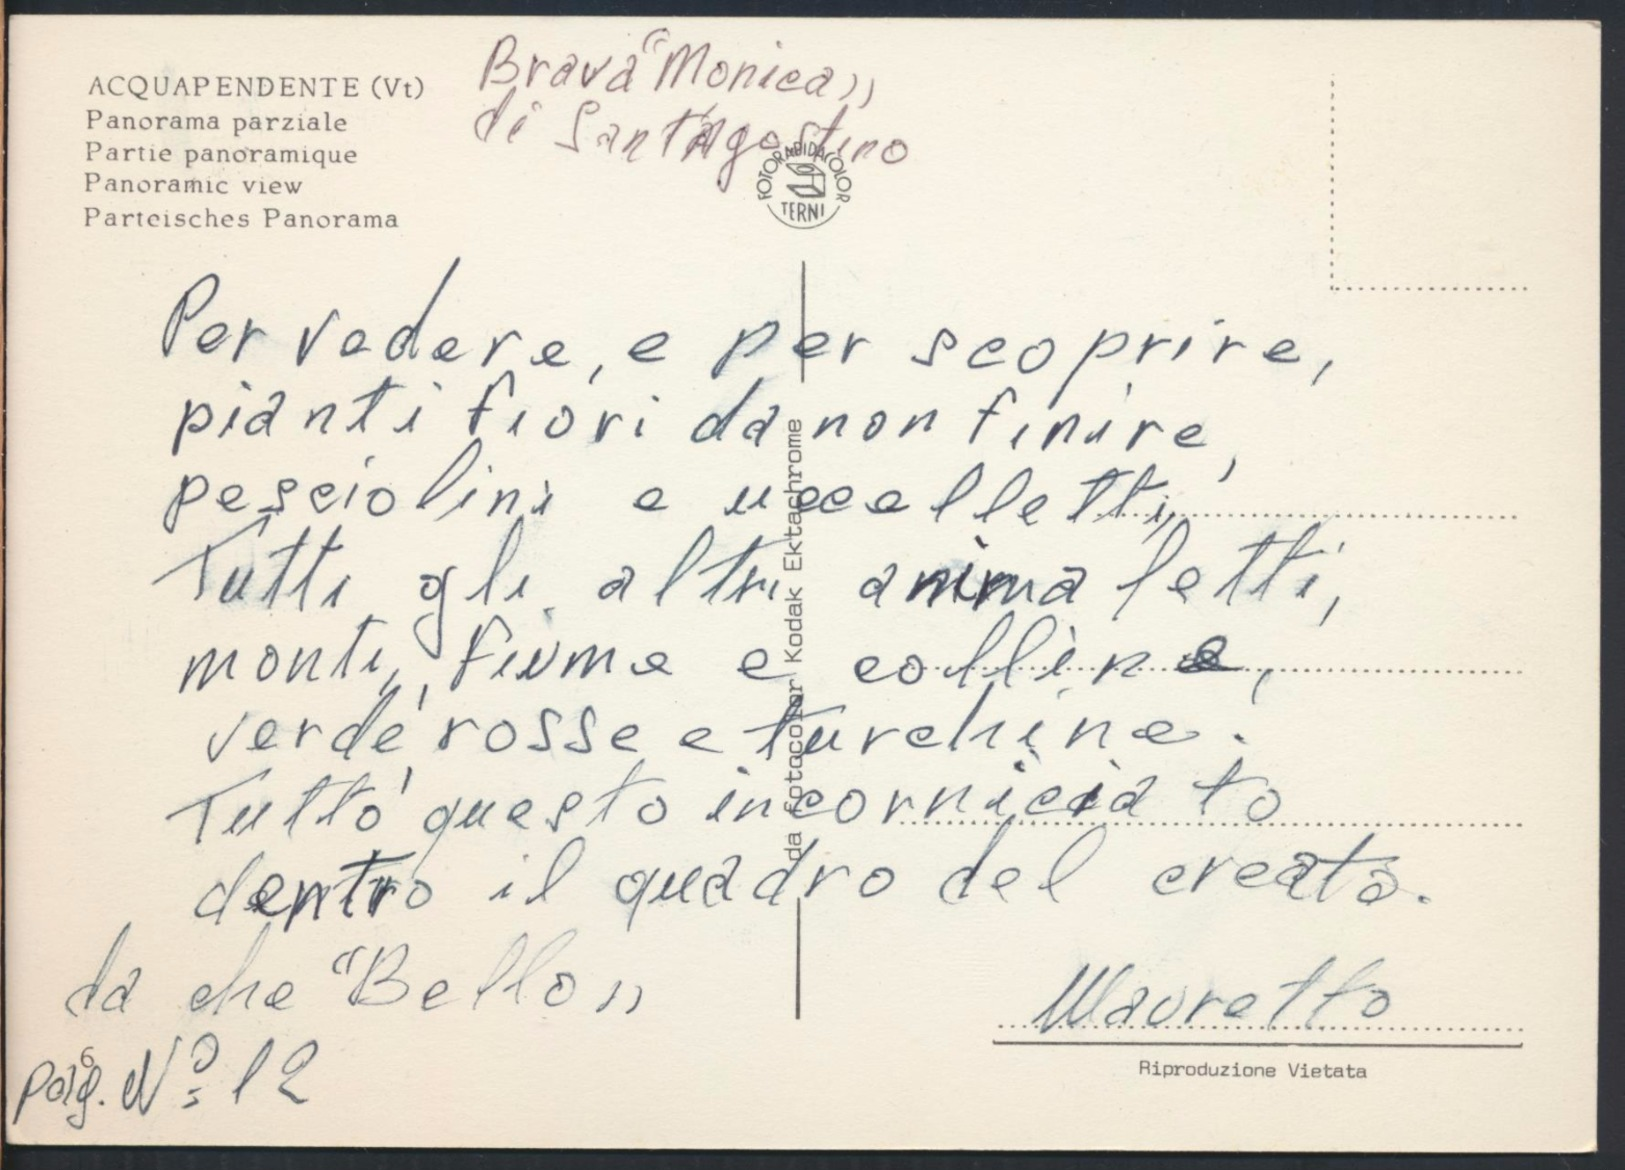 Brava “Monica”
di Sant'Agostino
ACQUAPENDENTE (Vt)
Panorama parziale
Partie panoramique
Panoramic view
Parteisches Panorama
FOTORAPIDACOLOR
TERNI
Per vedere, e per scoprire,
pianti fiori da non finire,
pesciolini e uccelletti,
Tutti gli altri animaletti,
monti, fiume e colline,
verde, rosse e turchine.
Tutto questo incorniciato
dentro il quadro del creato.
da che “Bello”
Mauretto
pag. N° 12
6
da fotocolor Kodak Ektachrome
Riproduzione Vietata